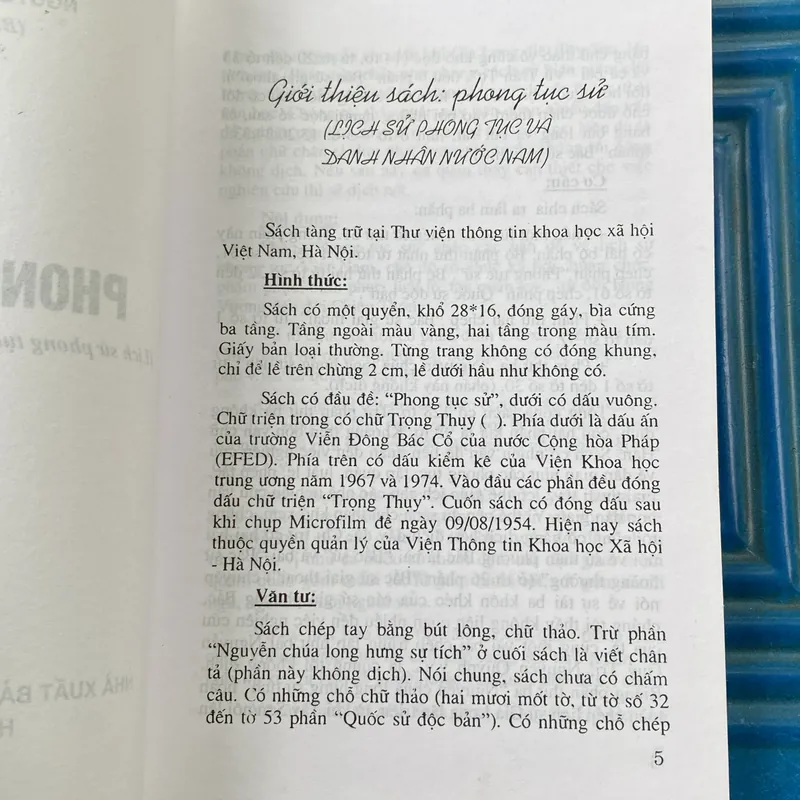 Giới thiệu sách: phong tục sử
(LỊCH SỬ PHONG TỤC VÀ
DANH NHÂN NƯỚC NAM)
Sách tàng trữ tại Thư viện thông tin khoa học xã hội
Việt Nam, Hà Nội.
Hình thức:
Sách có một quyển, khổ 28*16, đóng gáy, bìa cứng
ba tầng. Tầng ngoài màu vàng, hai tầng trong màu tím.
Giấy bản loại thường. Từng trang không có đóng khung,
chỉ để lề trên chừng 2 cm, lề dưới hầu như không có.
Sách có đầu đề: “Phong tục sử”, dưới có dấu vuông.
Chữ triện trong có chữ Trọng Thụy ( ). Phía dưới là dấu ấn
của trường Viễn Đông Bác Cổ của nước Cộng hòa Pháp
(EFED). Phía trên có dấu kiểm kê của Viện Khoa học
trung ương năm 1967 và 1974. Vào đầu các phần đều đóng
dấu chữ triện “Trọng Thụy”. Cuốn sách có đóng dấu sau
khi chụp Microfilm đề ngày 09/08/1954. Hiện nay sách
thuộc quyền quản lý của Viện Thông tin Khoa học Xã hội
- Hà Nội.
Văn tư:
Sách chép tay bằng bút lông, chữ thảo. Trừ phần
“Nguyễn chúa long hưng sự tích” ở cuối sách là viết chân
tả (phần này không dịch). Nói chung, sách chưa có chấm
câu. Có những chỗ chữ thảo (hai mươi mốt tờ, từ tờ số 32
đến tờ 53 phần “Quốc sử độc bản”). Có những chỗ chép
5